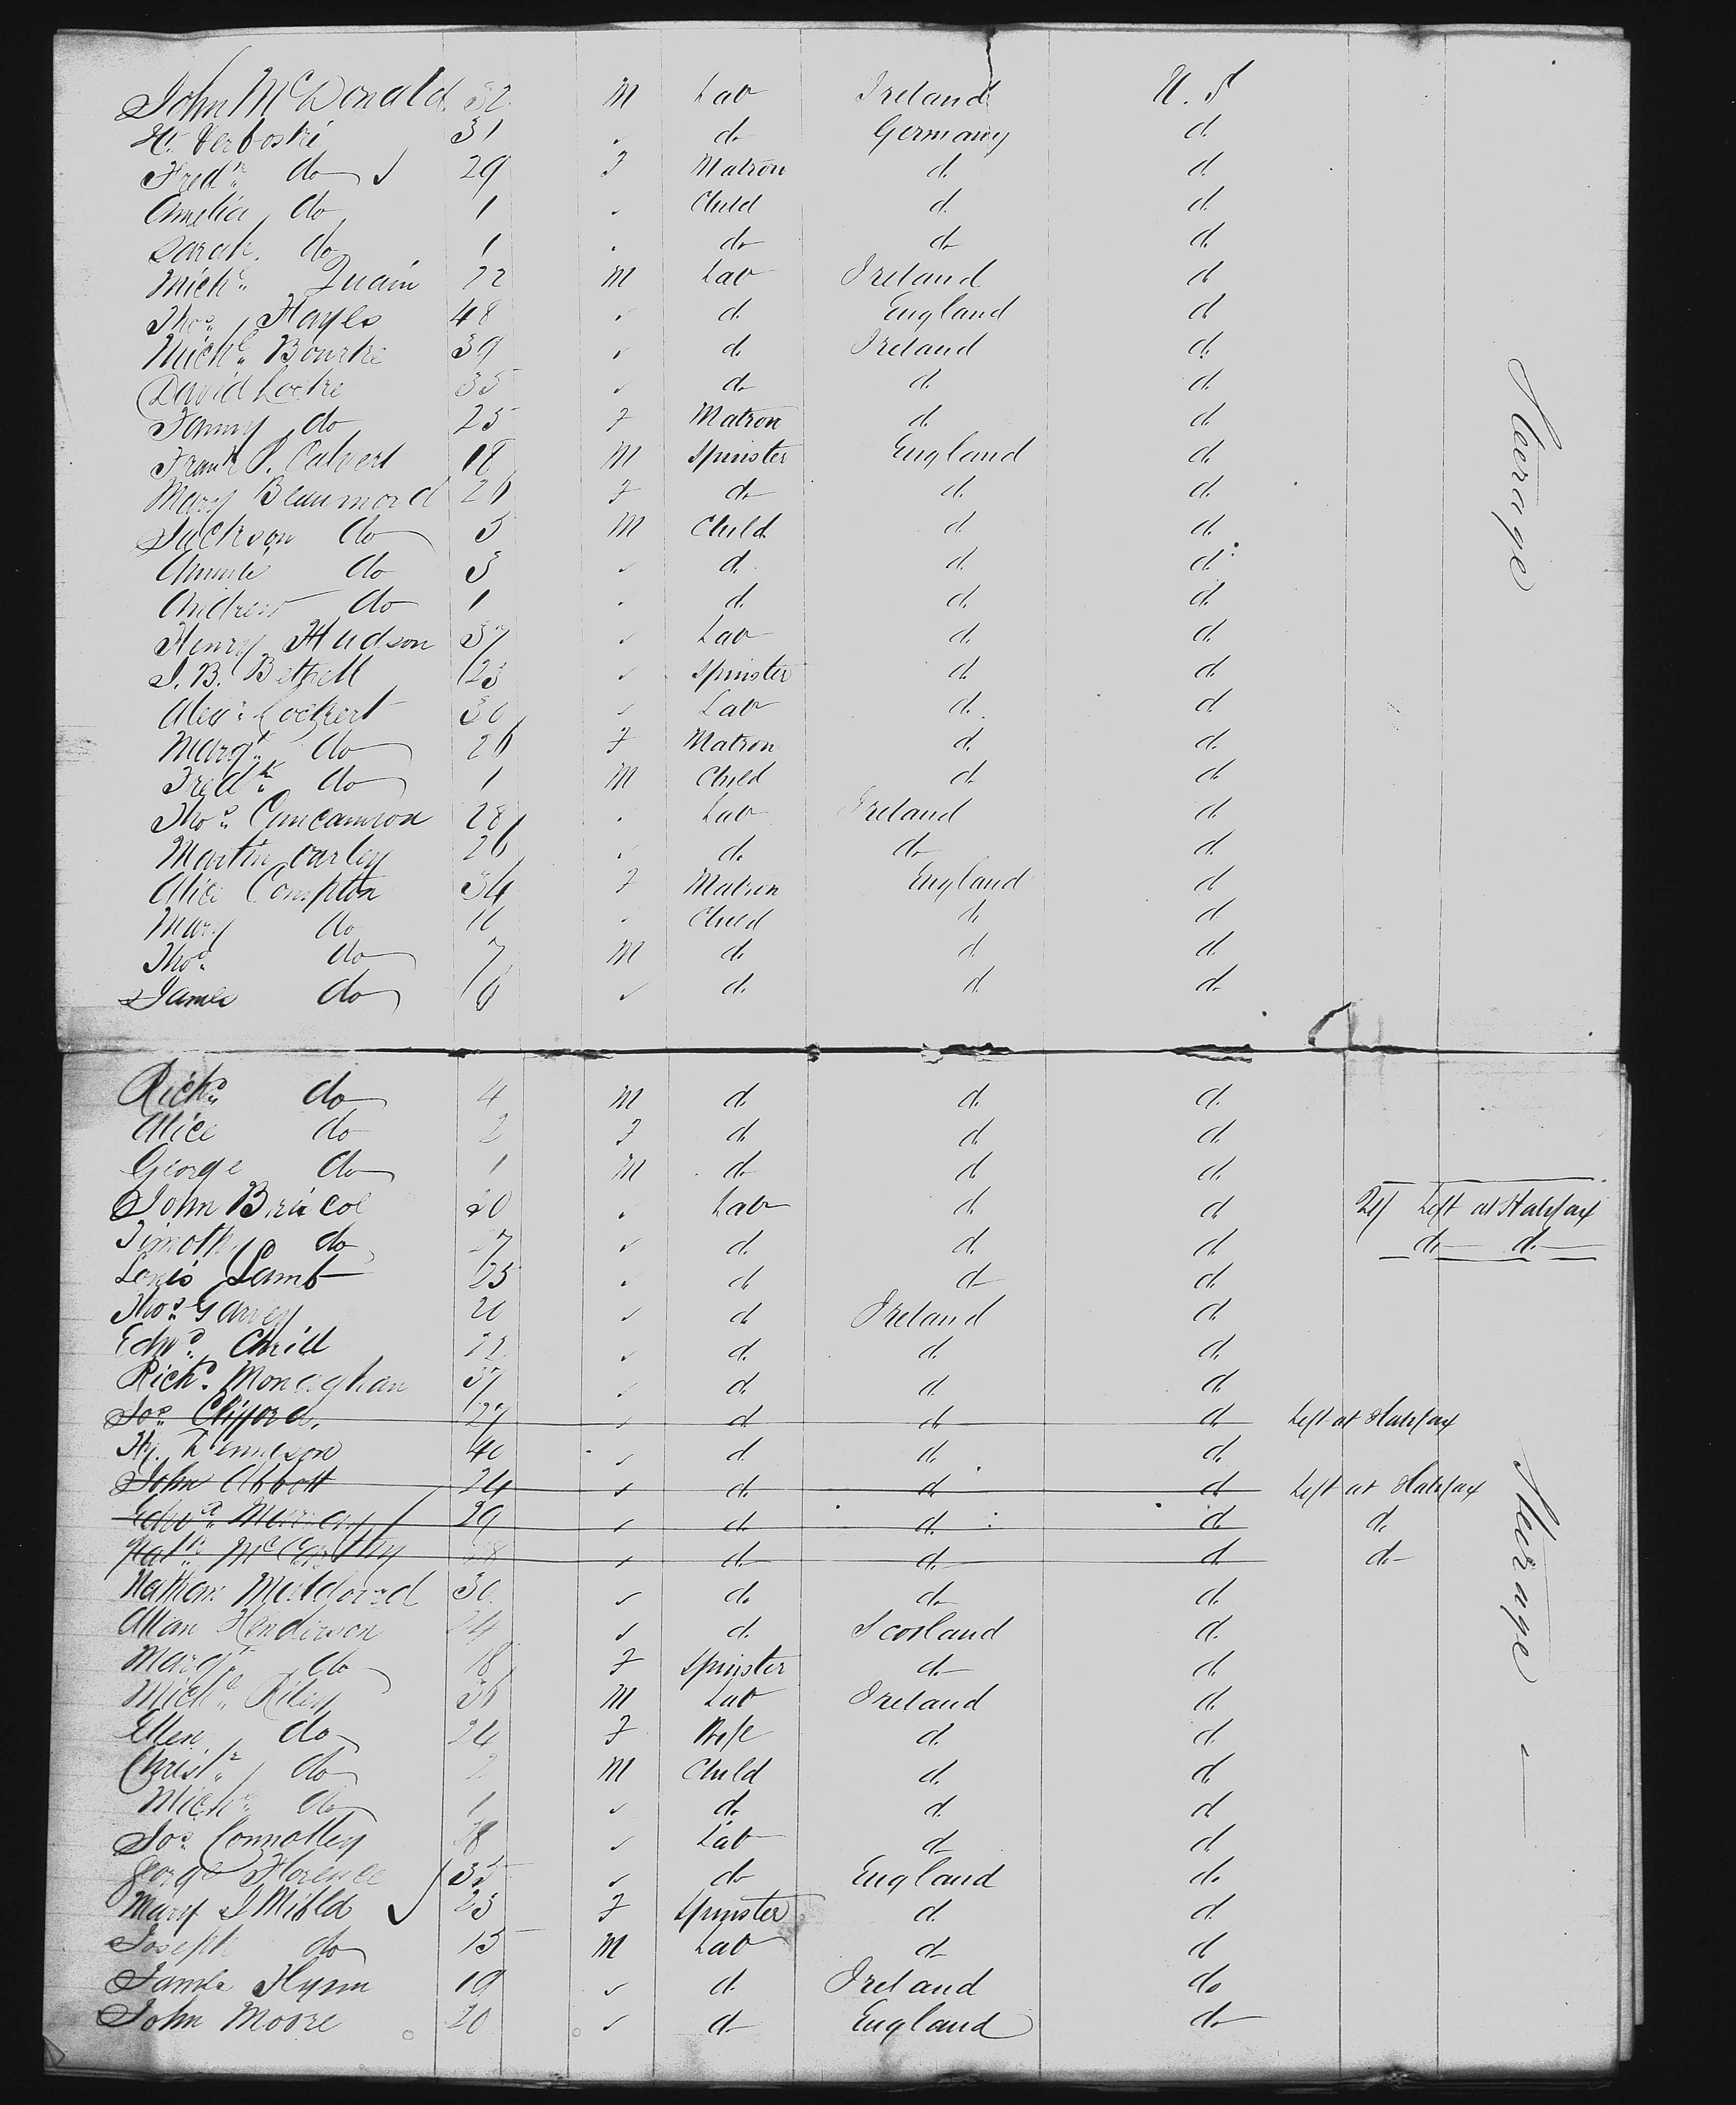 John McDonald 32 M Lab Ireland U. S
H. Verboski 31 " do Germany d.
Fredk. do 29 F Matron d. d
Amelia do 1 " Child d. d.
Sarah. do 1 " do do d.
Michl. Quain 22 M Lab Ireland d
Thos. Hayes 48 " d. England d
Michl. Bourke 39 " d. Ireland d.
David Locke 35 " d d. d.
Fanny do 25 F Matron d. d
Frank P. Calvert 18 M Spinster England d.
Mary Beaumond 26 F d d. d.
Jackson do 5 M Child d d.
do 3 " d. d. d.
Andrew do 1 " d. d. d.
Henry Hudson 37 " Lab d. d.
J. B. Bethell 23 " Spinster d. d.
Alexr. Cockert 30 " Lab d. d
Margt. do 26 F Matron d. d.
Fredk. do 1 M Child d d
Thos. 28 " Lab Ireland d
Martin Carley 26 " d. do d.
Alice Compton 34 F Matron England d
Mary do " Child d. d
Thos. do 7 M d. d. d.
James do 6 " d. d d.
Steerage
Richd. do 4 M d. d. d.
Alice do 2 F d. d d.
George do 1 M d d d.
John Bricoe 20 " Lab d. d Left at Halifax
Timothy do 27 " d. d. d do d.
Louis Lamb 25 " d d d.
Thos. Garvey 20 " d Ireland d.
Edwd. 22 " d. d. d.
Richd. Monaghan 37 " d. d. d.
Jos. Clifford. 27 " d d d Left at Halifax
Hy. Denneson 40 " d d. d.
John Abbott 24 " d. d d Left at Halifax
Edwd. 29 " d. d. d d.
Patk. McCarthy 28 " d d d d
Nathan 30 " d. do d.
Allan Henderson 24 " d. Scotland d.
Margt. do 18 F Spinster do d.
Michl. Riley 36 M Lab Ireland d.
Ellen do 24 F Wife d. d.
Christr. do 2 M Child d. d.
Michl. do 1 " d. d. d
Jos. Connolley 28 " Lab do d
George Florence 35 " do England d.
Mary 23 F Spinster d. d.
Joseph do 15 M Lab d d
James Flynn 19 " d. Ireland do
John Moore 20 " d England do
Steerage